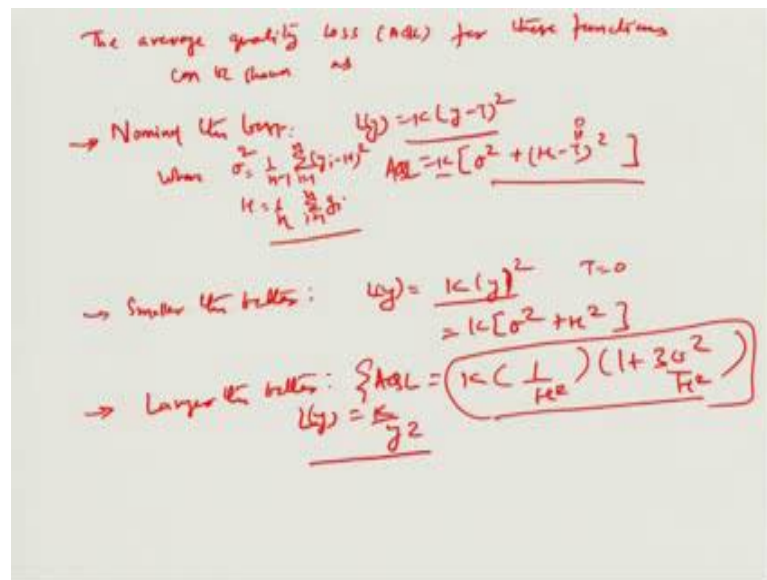 The average quality loss (AQL) for these functions
can be shown as
→ Nominal the best: L(y) = K(y-T)²
where σ² = 1/(n-1) Σ(i=1 to n) (yi-μ)² AQL = K[σ² + (μ-T)²]
μ = 1/n Σ(i=1 to n) yi
→ Smaller the better: L(y) = K(y)² T=0
= K[σ² + μ²]
→ Larger the better: {AQL = K(1/μ²)(1+3σ²/μ²)
L(y) = K/y²